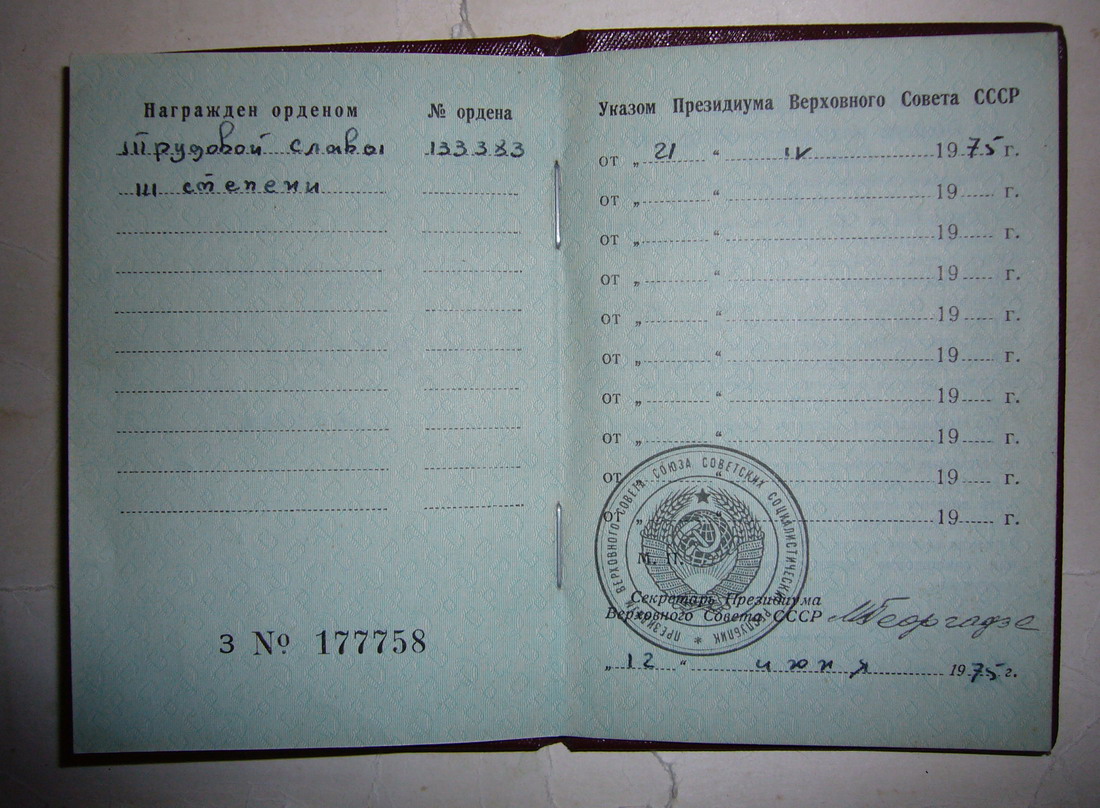 Награжден орденом № ордена
Трудовой Славы 133383
III степени
З № 177758
Указом Президиума Верховного Совета СССР
от „ 21 “ IV 1975 г.
от „ “ 19 г.
от „ “ 19 г.
от „ “ 19 г.
от „ “ 19 г.
от „ “ 19 г.
от „ “ 19 г.
от „ “ 19 г.
от „ “ 19 г.
от „ “ 19 г.
ПРЕЗИДИУМ ВЕРХОВНОГО СОВЕТА СОЮЗА СОВЕТСКИХ СОЦИАЛИСТИЧЕСКИХ РЕСПУБЛИК
М. П.
Секретарь Президиума
Верховного Совета СССР МГеоргадзе
„ 12 “ июня 1975 г.